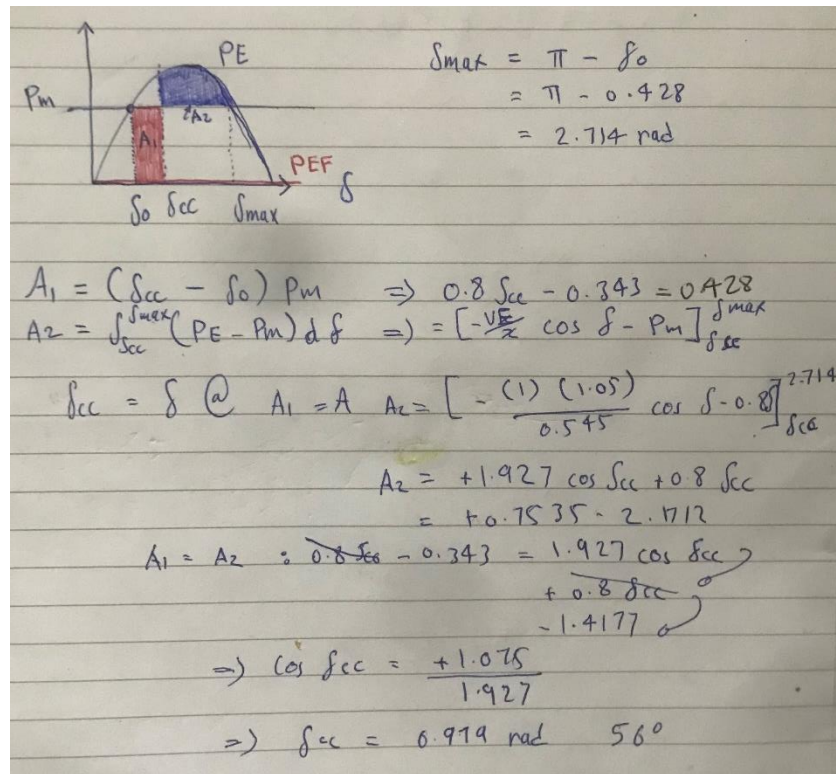 PE
Pm
A1
A2
PEF
δ0 δcc δmax
δ
δmax = π - δ0
= π - 0.428
= 2.714 rad
A1 = (δcc - δ0) Pm => 0.8 δcc - 0.343 = 0.428
A2 = ∫δcc^δmax (PE - Pm) dδ => = [-VE/x cos δ - Pm]δcc^δmax
δcc = δ @ A1 = A A2 = [-(1)(1.05)/0.545 cos δ - 0.8δ]δcc^2.714
A2 = +1.927 cos δcc + 0.8 δcc
= +0.7535 - 2.1712
A1 = A2 : 0.8 δcc - 0.343 = 1.927 cos δcc
+ 0.8 δcc
- 1.4177
=> cos δcc = +1.075/1.927
=> δcc = 0.979 rad 56°